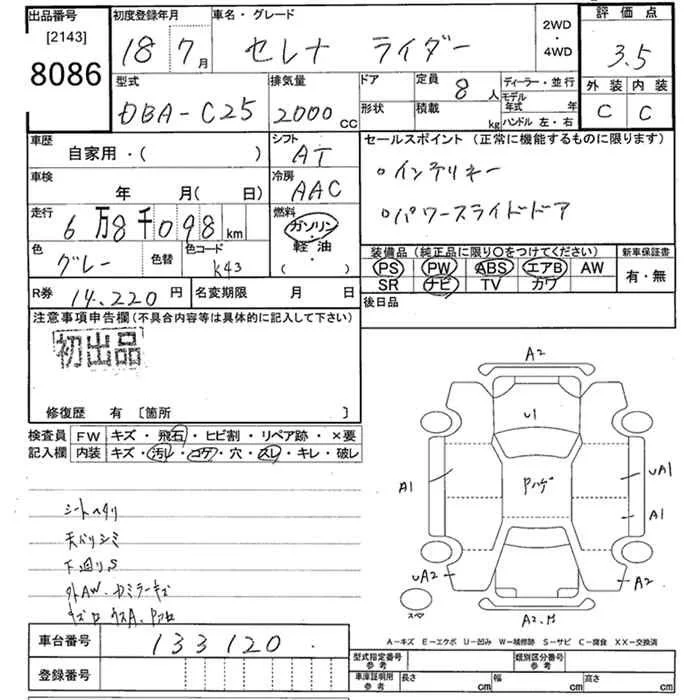 出品番号
[2143]
8086
初度登録年月
18 7月
車名・グレード
セレナ ライダー
2WD
・
4WD
評価点
3.5
外装 内装
C C
型式
DBA-C25
排気量
2000 CC
ドア
形状
定員
8人
積載
kg
ディーラー・並行
モデル年式 年
ハンドル 左・右
車歴
自家用・( )
シフト
AT
車検
年 月( 日)
冷房
AAC
走行
6万8千098 km
燃料
ガソリン
軽油
( )
色
グレー
色替
色コード
K43
R券 14,220円
名変期限 月 日
セールスポイント(正常に機能するものに限ります)
・インテリキー
・パワースライドドア
装備品(純正品に限り〇をつけてください)
新車保証書
PS PW ABS エアB AW
SR ナビ TV カワ
有・無
後日品
注意事項申告欄(不具合内容等は具体的に記入して下さい)
初出品
修復歴 有 [箇所 ]
検査員記入欄
FW キズ・飛石・ヒビ割・リペア跡・×要
内装 キズ・汚レ・コゲ・穴・スレ・キレ・破レ
シートヘタリ
天バリシミ
下廻りS
外AW、カミラーキズ
A2
U1
A1
Pハゲ
UA1
A1
UA2
A2
スペア
A2
A-キズ E-エクボ U-凹み W-補修跡 S-サビ C-腐食 XX-交換済
車台番号 133120
登録番号
型式指定番号
参考
類別区分番号
参考
車庫証明用
参考
長さ cm 幅 cm 高さ cm